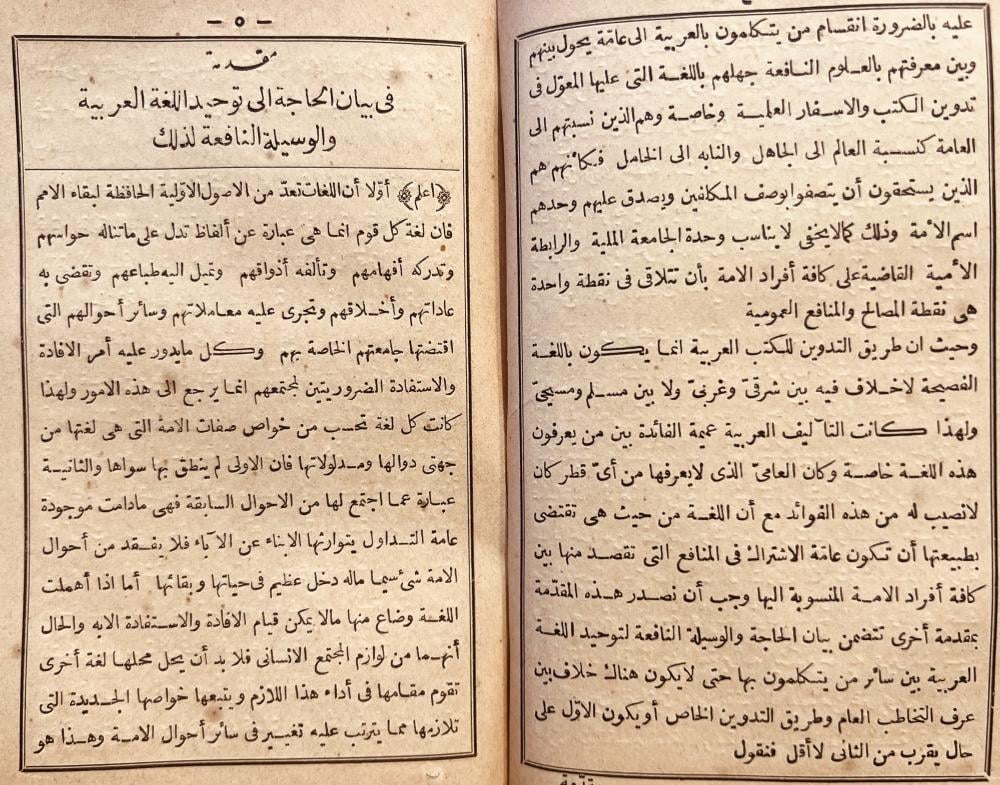 عليه بالضرورة انقسام من يتكلمون بالعربية الى عامّة يحول بينهم
وبين معرفتهم بالعلوم النافعة جهلهم باللغة التى عليها المعوّل فى
تدوين الكتب والاسفار العلمية وخاصة وهم الذين نسبتهم الى
العامة كنسبة العالم الى الجاهل والنابه الى الخامل فكأنهم هم
الذين يستحقون أن يتصفوا بوصف المكلفين ويصدق عليهم وحدهم
اسم الأمة وذلك كما لا يخفى لا يناسب وحدة الجامعة الملية والرابطة
الأمية القاضية على كافة أفراد الامة بأن تتلاقى فى نقطة واحدة
هى نقطة المصالح والمنافع العمومية
وحيث ان طريق التدوين للكتب العربية انما يكون باللغة
الفصيحة لاخلاف فيه بين شرقىّ وغربىّ ولا بين مسلم ومسيحىّ
ولهذا كانت التآليف العربية عميمة الفائدة بين من يعرفون
هذه اللغة خاصة وكان العامىّ الذى لا يعرفها من أىّ قطر كان
لانصيب له من هذه الفوائد مع أن اللغة من حيث هى تقتضى
بطبيعتها أن تكون عامّة الاشتراك فى المنافع التى تقصد منها بين
كافة أفراد الامة المنسوبة اليها وجب أن نصدر هذه المقدّمة
بمقدمة أخرى تتضمن بيان الحاجة والوسيلة النافعة لتوحيد اللغة
العربية بين سائر من يتكلمون بها حتى لايكون هناك خلاف بين
عرف التخاطب العام وطريق التدوين الخاص أو يكون الاوّل على
حال يقرب من الثانى لاأقل فنقول
مقدّمة
— ٥ —
مقدمة
فى بيان الحاجة الى توحيد اللغة العربية
والوسيلة النافعة لذلك
﴿اعلم﴾ أوّلا أن اللغات تعدّ من الاصول الاوّلية الحافظة لبقاء الامم
فان لغة كل قوم انما هى عبارة عن ألفاظ تدل على ما تناله حواسهم
وتدركه أفهامهم وتألفه أذواقهم وتميل اليه طباعهم وتقضى به
عاداتهم وأخلاقهم وتجرى عليه معاملاتهم وسائر أحوالهم التى
اقتضتها جامعتهم الخاصة بهم وكل مايدور عليه أمر الافادة
والاستفادة الضروريتين لمجتمعهم انما يرجع الى هذه الامور ولهذا
كانت كل لغة تحسب من خواص صفات الامة التى هى لغتها من
جهتى دوالها ومدلولاتها فان الاولى لم ينطق بها سواها والثانية
عبارة عما اجتمع لها من الاحوال السابقة فهى مادامت موجودة
عامة التداول يتوارثها الابناء عن الآباء فلا يفقد من أحوال
الامة شئ سيما ماله دخل عظيم فى حياتها وبقائها أما اذا أهملت
اللغة وضاع منها مالا يمكن قيام الافادة والاستفادة الابه والحال
أنهما من لوازم المجتمع الانسانى فلا بد أن يحل محلها لغة أخرى
تقوم مقامها فى أداء هذا اللازم ويتبعها خواصها الجديدة التى
تلازمها مما يترتب عليه تغيير فى سائر أحوال الامة وهذا هو